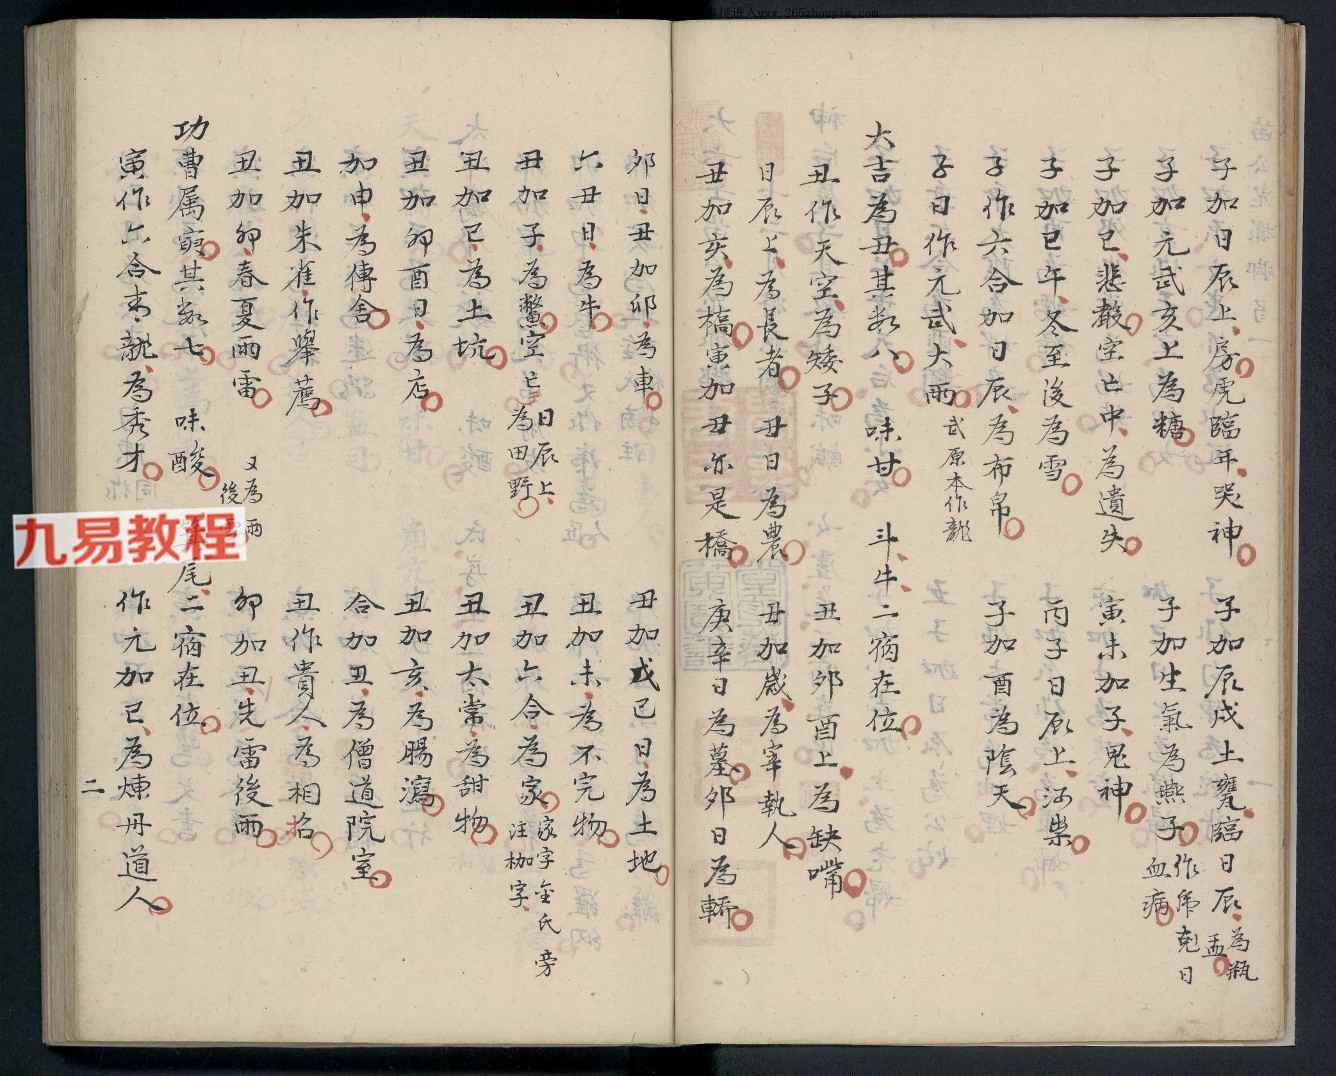 子加日辰上、為虎臨年、哭神　子加辰戌土、甕、臨日辰、為瓶盂
子加元武亥上為糖　子加生氣為燕子作虎剋日血病
子加巳、悲嚴空亡中、為遺失　寅未加子、鬼神
子加巳午、冬至後為雪　丙子日辰上、
子作六合加日辰、為布帛　子加酉為陰天
子日作元武、大雨武原本作龍
大吉為丑其数八　味甘　斗、牛二宿在位
丑作天空、為矮子　丑加卯酉上、為缺嘴
日辰上、為長者　丑日為農　丑加歲、為宰執人
丑加亥、為橋寅加丑亦是橋　庚辛日為墓、卯日為轎
卯日、丑加卯、為車　丑加戊己日、為土地
六丑日、為牛　丑加未、為不完物
丑加子、為鱉空亡日辰上、為田野　丑加六合、為家家字金氏旁注枷字、
丑加巳、為土坑　丑加太常、為甜物
丑加卯酉日、為店　丑加亥、為腸瀉
加申、為傳舍　合加丑、為僧道院室
丑加朱雀、作舉薦　丑作貴人、為相招
丑加卯、春夏雨雷又為雨後　卯加丑、先雷後雨
功曹属寅其数七　味酸　尾、二宿在位
寅作六合青龍、為秀才　作元加巳、為煉丹道人
二
九易教程